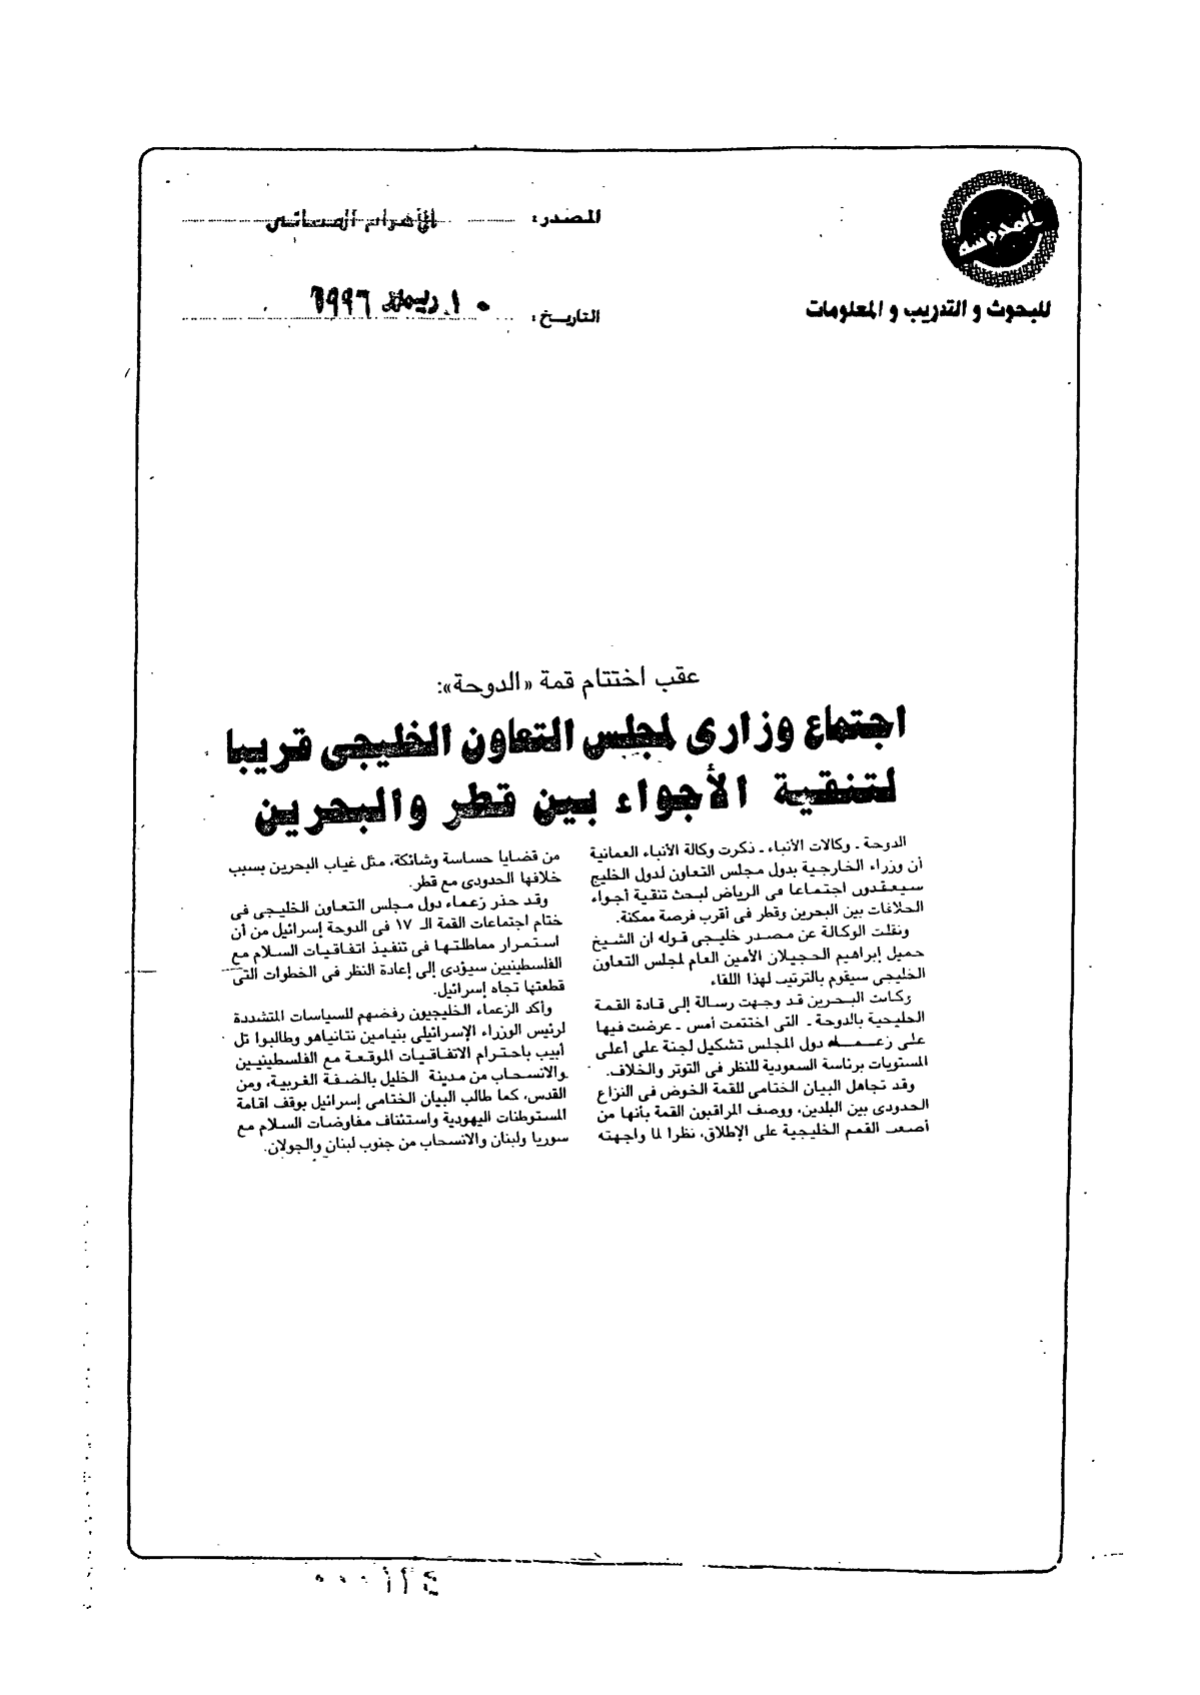 المدوسة
للبحوث و التدريب و المعلومات
المصدر: الأهرام المسائى
التاريخ: ١٠ ديسمبر ١٩٩٦
عقب اختتام قمة «الدوحة»:
اجتماع وزارى لمجلس التعاون الخليجى قريبا
لتنقية الأجواء بين قطر والبحرين
الدوحة ـ وكالات الأنباء ـ ذكرت وكالة الأنباء العمانية
أن وزراء الخارجية بدول مجلس التعاون لدول الخليج
سيعقدون اجتماعا فى الرياض لبحث تنقية أجواء
الخلافات بين البحرين وقطر فى أقرب فرصة ممكنة.
ونقلت الوكالة عن مصدر خليجى قوله ان الشيخ
جميل إبراهيم الحجيلان الأمين العام لمجلس التعاون
الخليجى سيقوم بالترتيب لهذا اللقاء
وكانت البحرين قد وجهت رسالة إلى قادة القمة
الخليجية بالدوحة ـ التى اختتمت أمس ـ عرضت فيها
على زعماء دول المجلس تشكيل لجنة على أعلى
المستويات برئاسة السعودية للنظر فى التوتر والخلاف.
وقد تجاهل البيان الختامى للقمة الخوض فى النزاع
الحدودى بين البلدين، ووصف المراقبون القمة بأنها من
أصعب القمم الخليجية على الإطلاق، نظرا لما واجهته
من قضايا حساسة وشائكة، مثل غياب البحرين بسبب
خلافها الحدودى مع قطر.
وقد حذر زعماء دول مجلس التعاون الخليجى فى
ختام اجتماعات القمة الـ ١٧ فى الدوحة إسرائيل من أن
استمرار مماطلتها فى تنفيذ اتفاقيات السلام مع
الفلسطينيين سيؤدى إلى إعادة النظر فى الخطوات التى
قطعتها تجاه إسرائيل.
وأكد الزعماء الخليجيون رفضهم للسياسات المتشددة
لرئيس الوزراء الإسرائيلى بنيامين نتانياهو وطالبوا تل
أبيب باحترام الاتفاقيات الموقعة مع الفلسطينيين
والانسحاب من مدينة الخليل بالضفة الغربية، ومن
القدس، كما طالب البيان الختامى إسرائيل بوقف اقامة
المستوطنات اليهودية واستئناف مفاوضات السلام مع
سوريا ولبنان والانسحاب من جنوب لبنان والجولان.